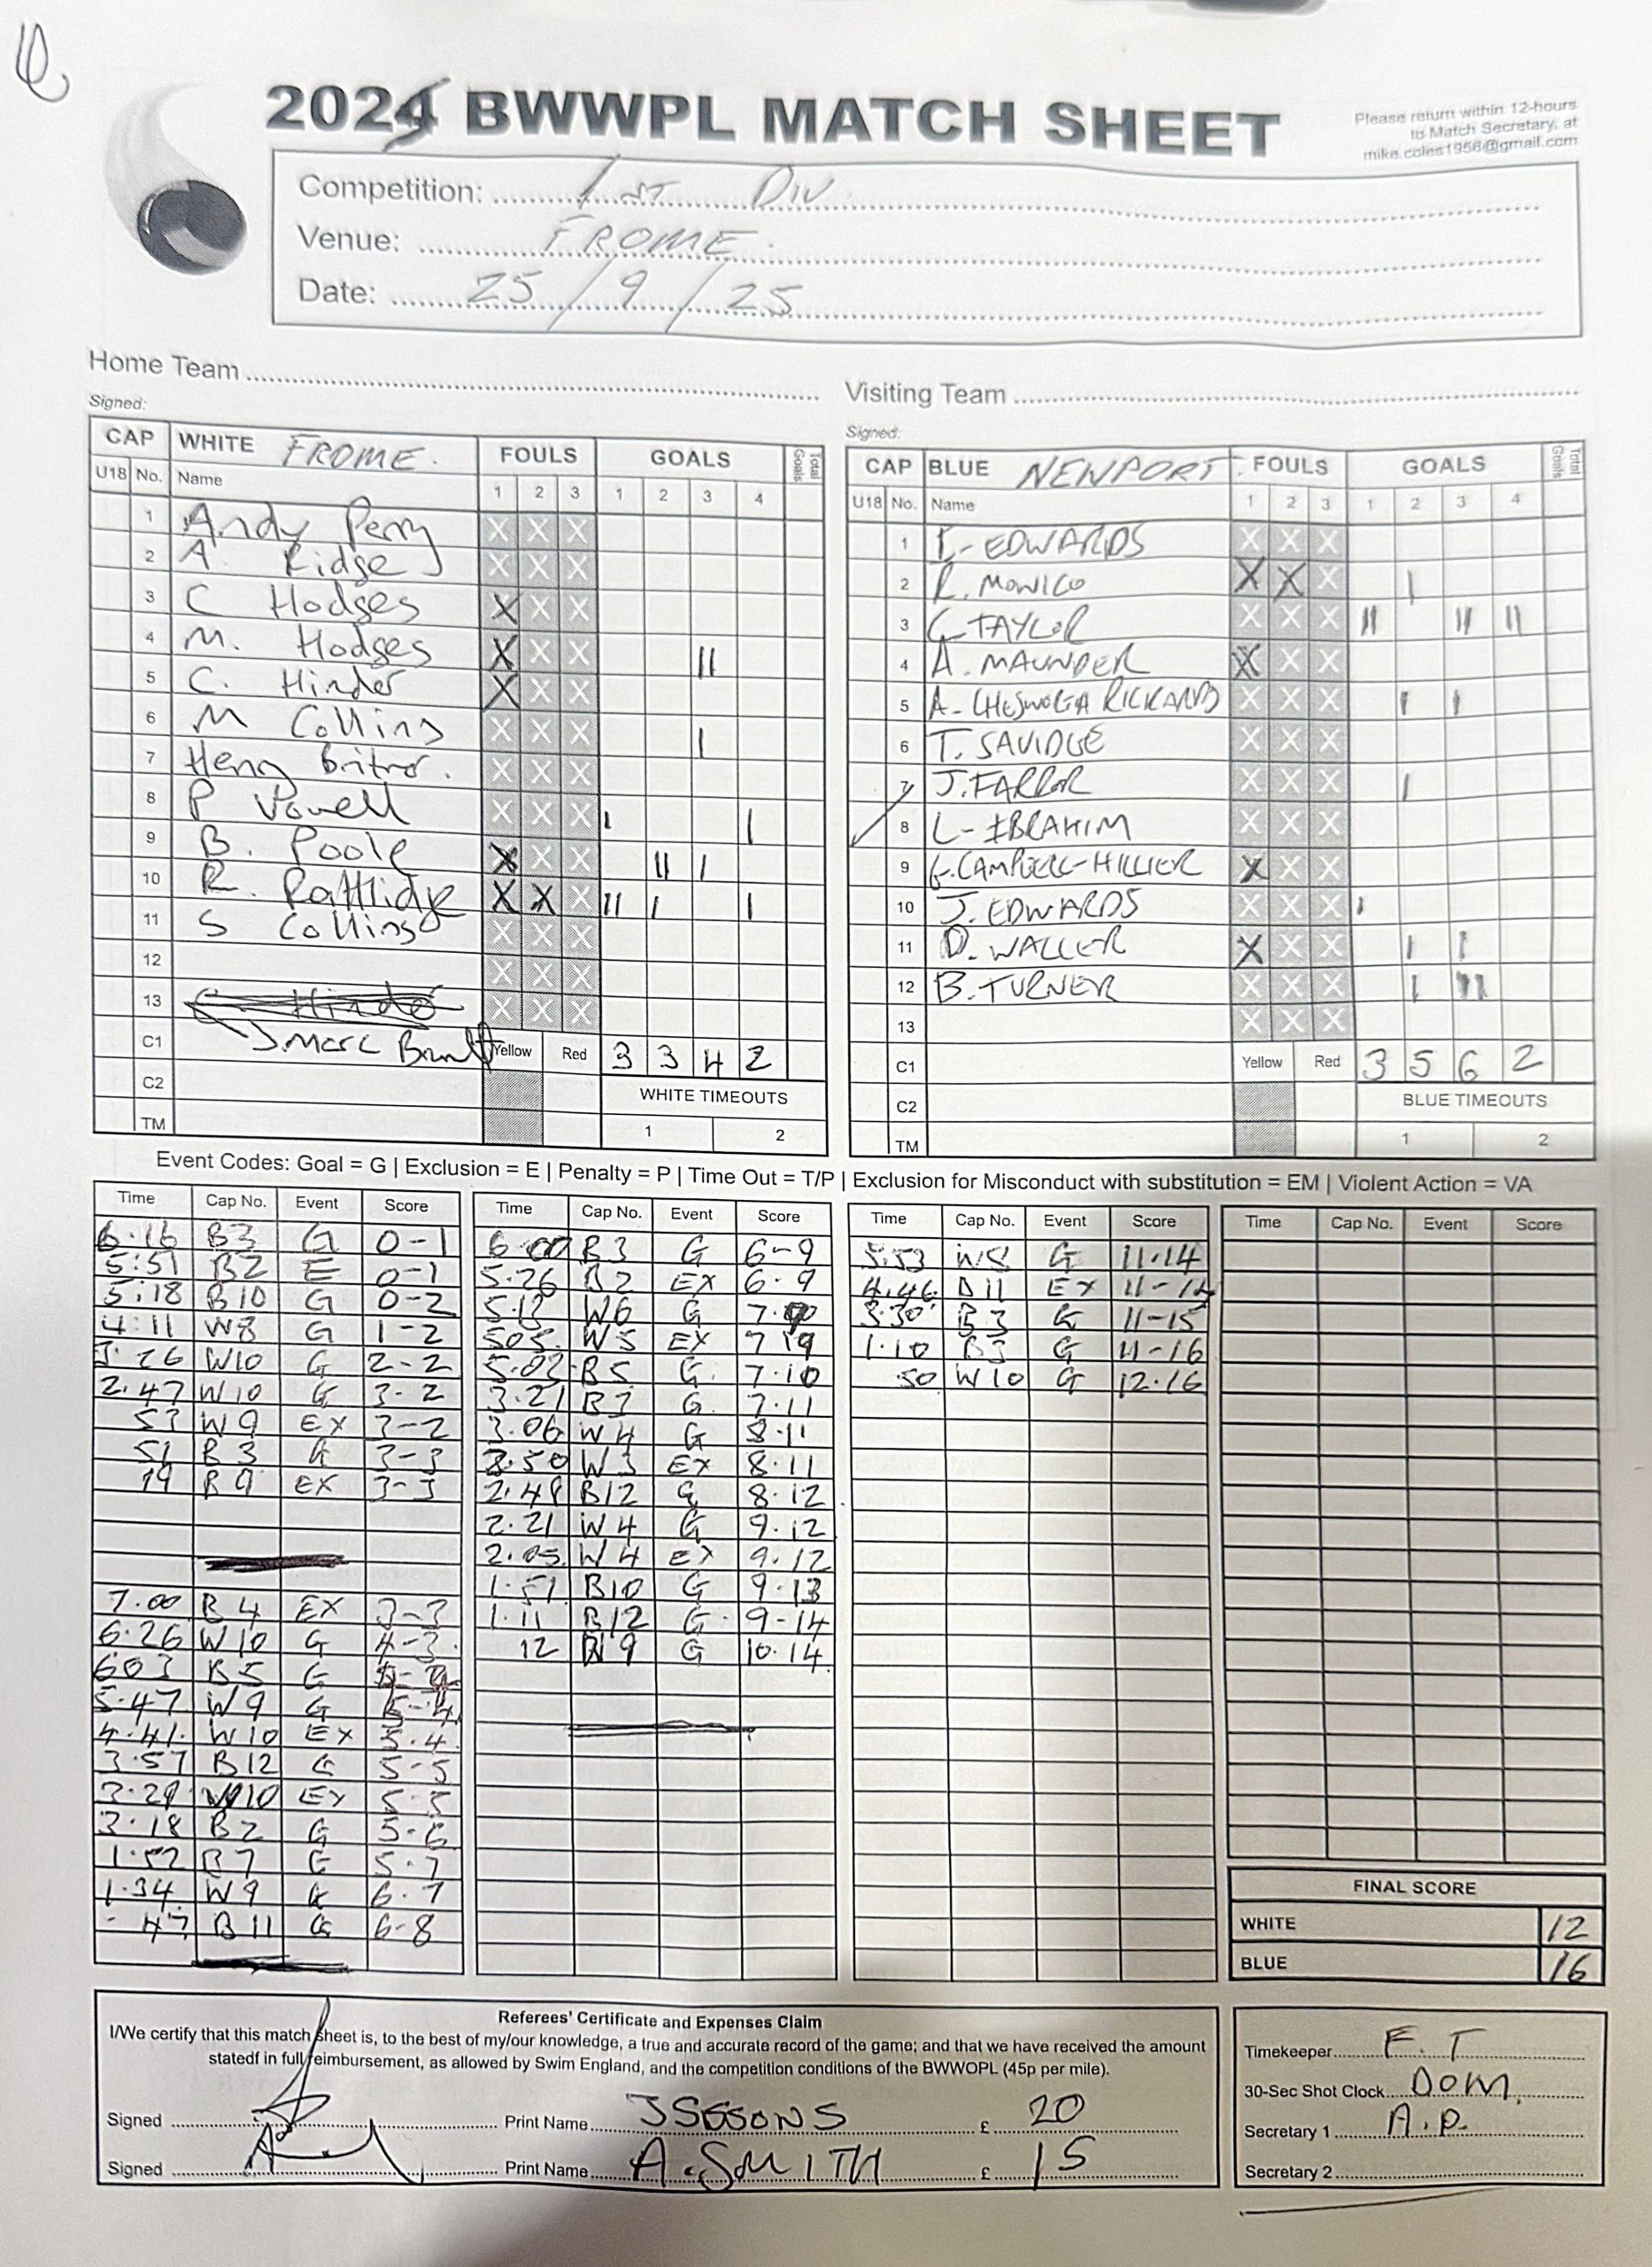 2025 BWWPL MATCH SHEET
Please return within 12-hours
to Match Secretary, at
mike.coles1956@gmail.com
Competition: 1st Div
Venue: FROME
Date: 25/9/25
Home Team
Visiting Team
Signed:
Signed:
CAP WHITE FROME. FOULS GOALS Total Goals
U18 No. Name 1 2 3 1 2 3 4
1 Andy Perry X X X
2 A. Ridge X X X
3 C Hodges X X X
4 M. Hodges X X X II
5 C. Hinder X X X
6 M Collins X X X I
7 Henry Britton. X X X
8 P Vowell X X X I I
9 B. Poole X X X II I
10 R. Rattlidge X X X II I I
11 S Collings X X X
12 X X X
13 X X X
C1 J. Marc Yellow Red 3 3 4 2
C2 WHITE TIMEOUTS
TM 1 2
CAP BLUE NEWPORT. FOULS GOALS Total Goals
U18 No. Name 1 2 3 1 2 3 4
1 EDWARDS X X X
2 R. MONICO X X X I
3 G TAYLOR X X X II II II
4 A. MAUNDER X X X
5 A- RICKARDS X X X I I
6 T. SAVIDGE X X X
7 J. FARROR X X X I
8 L- IBRAHIM X X X
9 G. CAMPBELL-HILLIER X X X
10 J. EDWARDS X X X I
11 D. WALLER X X X I I
12 B. TURNER X X X I III
13 X X X
C1 Yellow Red 3 5 6 2
C2 BLUE TIMEOUTS
TM 1 2
Event Codes: Goal = G | Exclusion = E | Penalty = P | Time Out = T/P | Exclusion for Misconduct with substitution = EM | Violent Action = VA
Time Cap No. Event Score
6.16 B3 G 0-1
5:51 B2 E 0-1
5:18 B10 G 0-2
4:11 W8 G 1-2
3.26 W10 G 2-2
2.47 W10 G 3-2
53 W9 EX 3-2
51 B3 G 3-3
19 B9 EX 3-3
7.00 B4 EX 3-3
6.26 W10 G 4-3.
603 B5 G 4-4
5.47 W9 G 5-4
4.41. W10 EX 5.4
3.57 B12 G 5-5
3.29 W10 EX 5.5
3.18 B2 G 5-6
1.52 B7 G 5.7
1.34 W9 G 6.7
47 B11 G 6-8
Time Cap No. Event Score
6.00 B3 G 6-9
5.26 B2 EX 6.9
5.12 W6 G 7.9
505. W5 EX 7.9
5.02 B5 G. 7.10
3.21 B3 G 7.11
3.06 W4 G 8.11
2.50 W3 EX 8.11
2.48 B12 G 8.12
2.21 W4 G 9.12
2.05. W4 EX 9.12
1.51 B10 G 9.13
1.11 B12 G 9-14
12 W9 G 10.14
Time Cap No. Event Score
5.53 W8 G 11.14
4.46 B11 EX 11-14
3.30 B3 G 11-15
1.10 B3 G 11-16
.50 W10 G 12.16
Time Cap No. Event Score
FINAL SCORE
WHITE 12
BLUE 16
Referees' Certificate and Expenses Claim
I/We certify that this match sheet is, to the best of my/our knowledge, a true and accurate record of the game; and that we have received the amount
statedf in full reimbursement, as allowed by Swim England, and the competition conditions of the BWWOPL (45p per mile).
Signed Print Name JSESSONS £ 20
Signed Print Name A. SMITH £ 15
Timekeeper F. T
30-Sec Shot Clock Dom.
Secretary 1 A.P.
Secretary 2